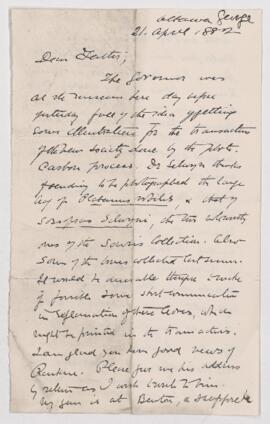 Ottawa George
21. April 1882
Dear Father;
The Governor was
at the museum here day before
yesterday full of the idea of getting
some illustrations for the transactions
of the new society done by the photo.
Carbon process. Dr Selwyn thinks
of sending to be photographed the large
leaf of Platanus nobilis, & that of
Sassafras Selwyni, the two
ones of the Souris Collection. Also
some of the ones collected last summer.
It would be desirable therefore to make
if possible some short communication
in explanation of these leaves, which
might be printed in the transactions.
I am glad you have good news of
Rankine. Please give me his address
by return as I wish to write to him.
My gun is at